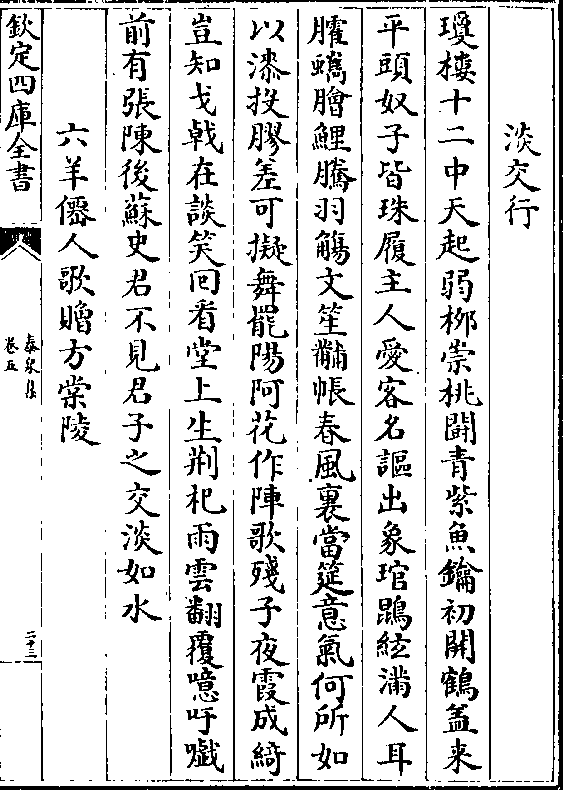 淡交行
瓊樓十二中天起弱栁崇桃鬬青紫魚鑰初開鶴葢来
平頭奴子皆珠履主人愛客名謳出象琯鵾絃滿人耳
臛蠵膾鯉騰羽觴文笙黼帳春風裏當筵意氣何所如
以漆投膠差可擬舞罷陽阿花作陣歌殘子夜霞成綺
豈知戈㦸在談笑囘看堂上生荆杞雨雲翻覆噫吁嚱
前有張陳後蘇史君不見君子之交淡如水
六羊僊人歌贈方棠陵
欽定四庫全書
泰泉集
卷五
二十三